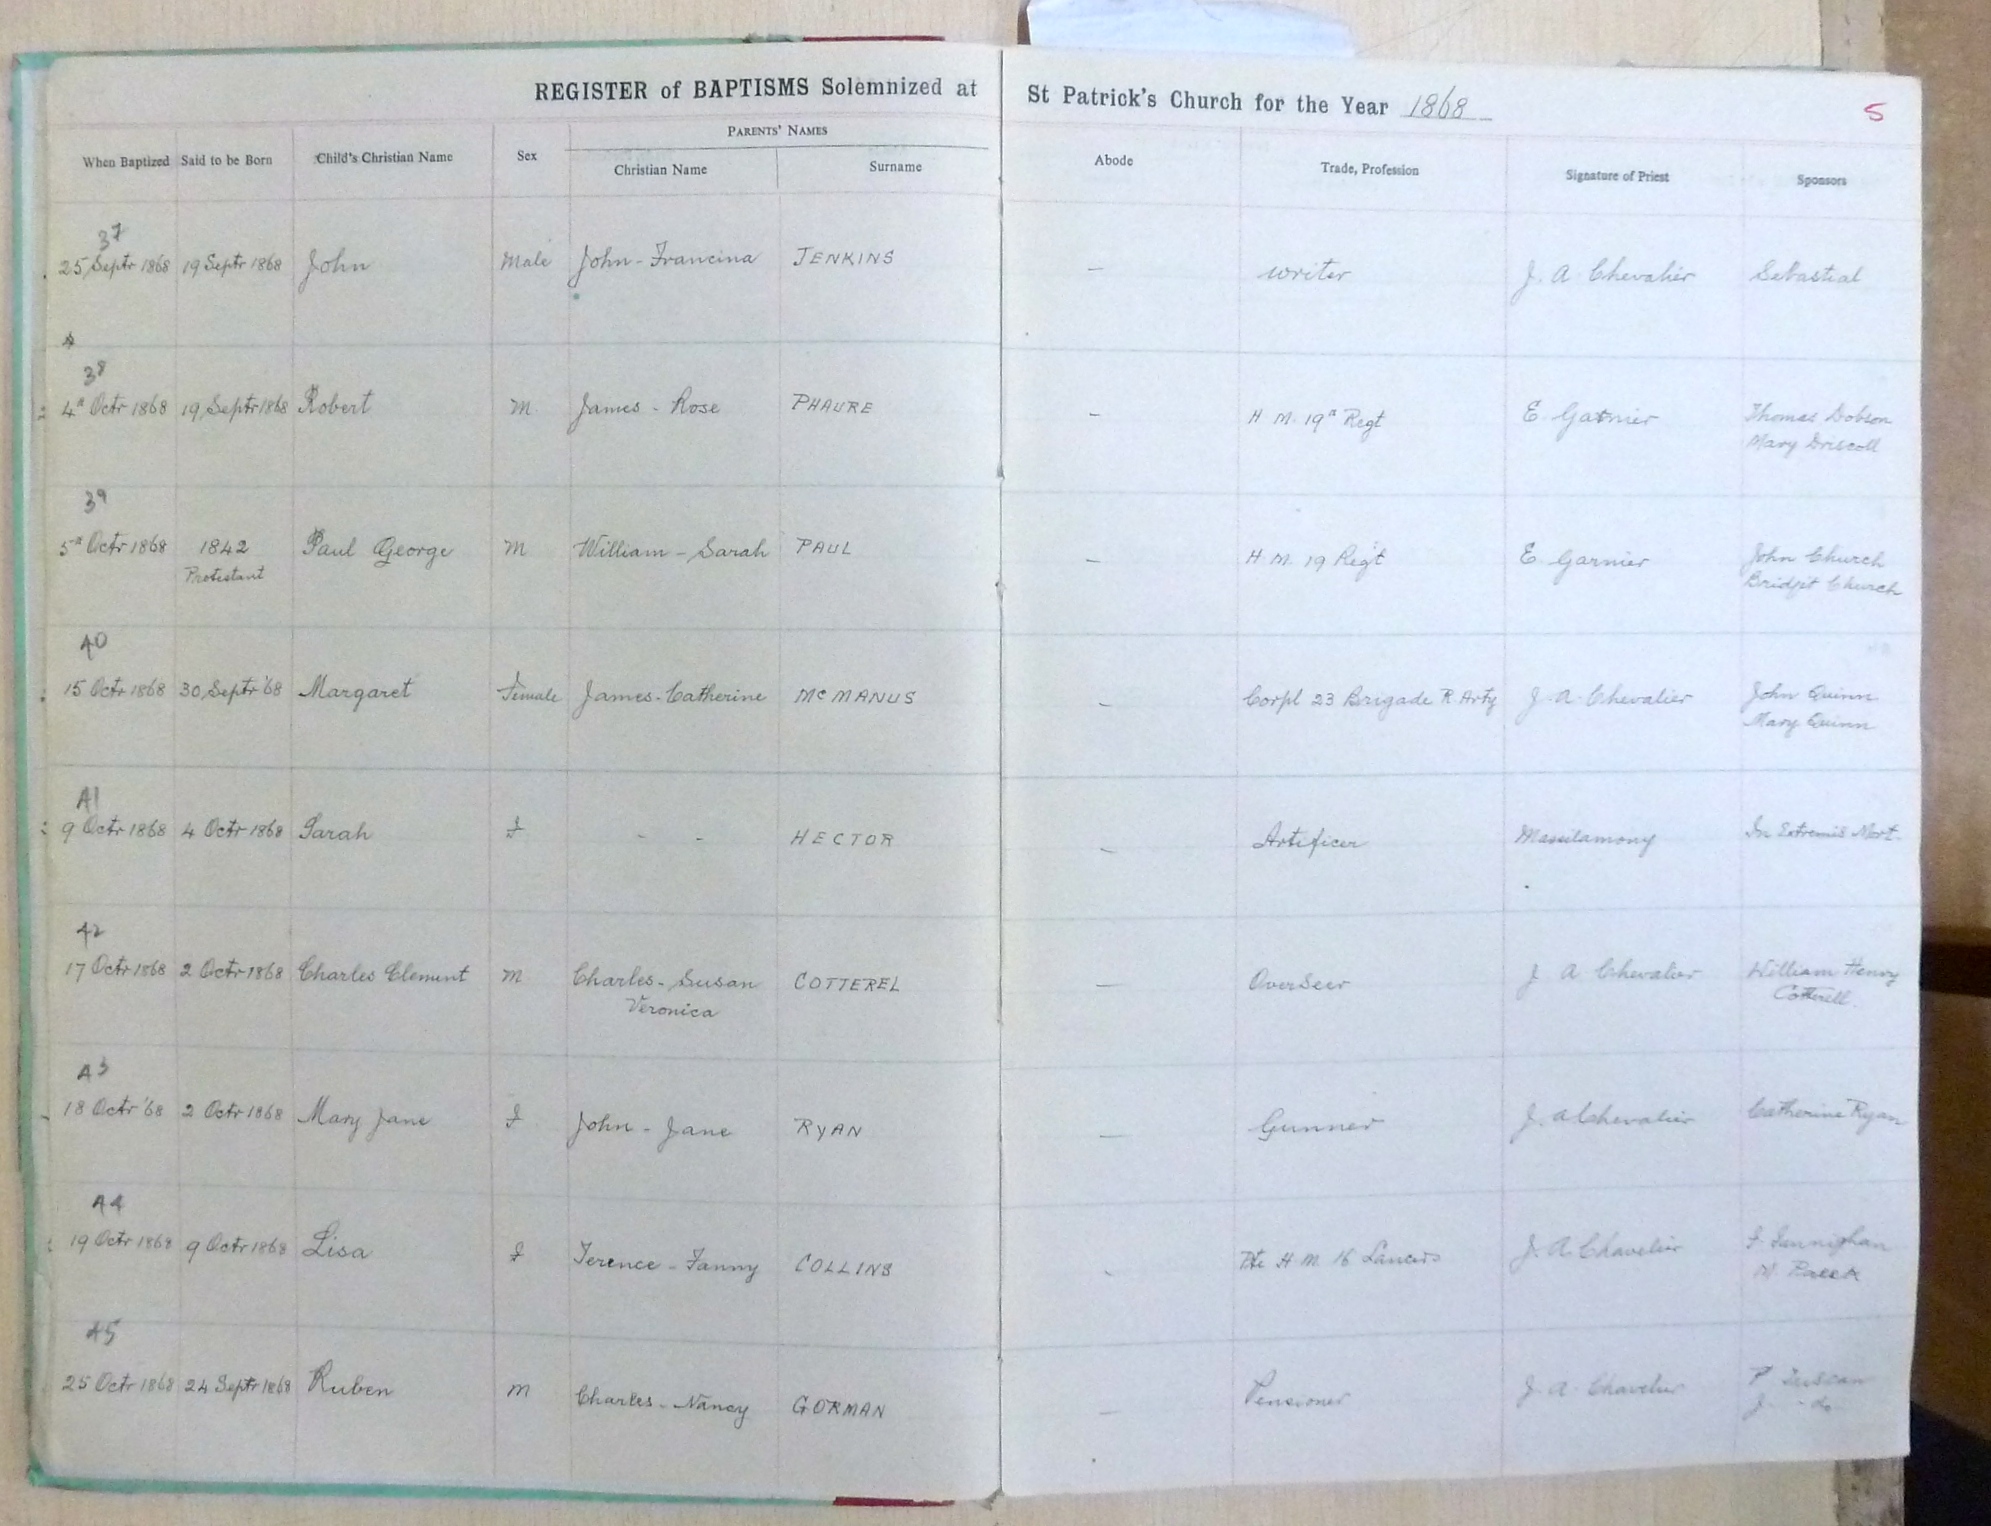 REGISTER of BAPTISMS Solemnized at St Patrick's Church for the Year 1868
5
PARENTS' NAMES
When Baptized Said to be Born Child's Christian Name Sex Christian Name Surname Abode Trade, Profession Signature of Priest Sponsors
37
25 Septr 1868 19 Septr 1868 John Male John - Francina JENKINS — writer J. A. Chevalier Sebastial
38
4th Octr 1868 19 Septr 1868 Robert M. James - Rose PHAURE — H. M. 19th Regt E. Garnier Thomas Dobson
Mary Driscoll
39
5th Octr 1868 1842 Paul George M William - Sarah PAUL — H. M. 19 Regt E. Garnier John Church
Protestant Bridgit Church
40
15 Octr 1868 30 Septr '68 Margaret Female James - Catherine McMANUS — Corpl 23 Brigade R. Arty J. A. Chevalier John Quinn
Mary Quinn
41
9 Octr 1868 4 Octr 1868 Sarah F - - HECTOR — Artificer Massilamony In Extremis Mort.
42
17 Octr 1868 2 Octr 1868 Charles Clement M Charles - Susan COTTEREL — Overseer J A Chevalier William Henry
Veronica Cotterell.
43
18 Octr '68 2 Octr 1868 Mary Jane F John - Jane RYAN — Gunner J. A Chevalier Catherine Ryan
44
19 Octr 1868 9 Octr 1868 Lisa F Terence - Fanny COLLINS - Pte H. M. 16 Lancers J. A. Chavelier F. Fannighan
45
25 Octr 1868 24 Septr 1868 Ruben M Charles - Nancy GORMAN — Pensioner J. A. Chavelier P
J. - do -